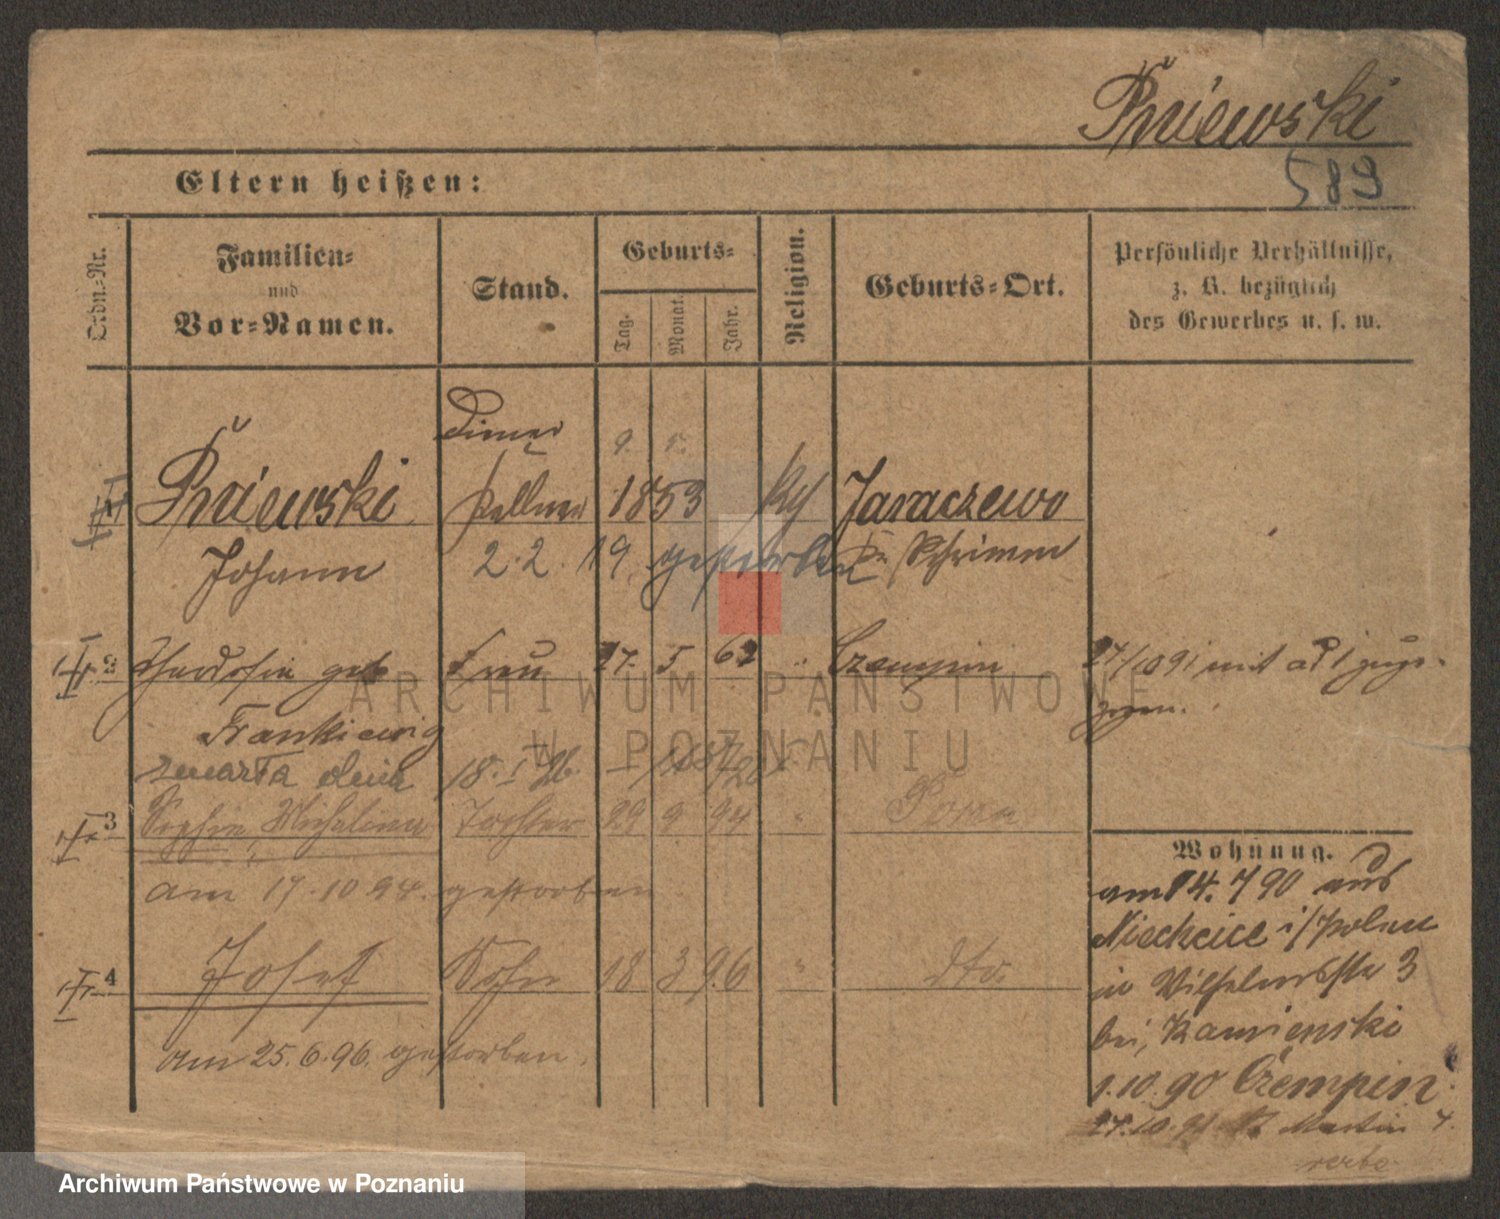 Pniewski
589
Eltern heißen:
Ordn.-Nr.
Familien-
und
Vor-Namen.
Stand.
Geburts-
Tag.
Monat.
Jahr.
Religion.
Geburts-Ort.
Persönliche Verhältnisse,
z. B. bezüglich
des Gewerbes u. s. w.
Diener
Pniewski Kellner 1853 Jaraczewo
Johann 2.2.19. gestorben Schrimm
2 geb Frau 27. 5 62 " Czempin 27/10 91 mit
Frankiewig zogen.
zmarła dnia 18.I 26.
3 Sophie, Michalina Tochter 29 9 94 " Posen
am 17.10 94. gestorben
4 Josef Sohn 18 3 96 " dto.
am 25.6.96. gestorben.
Wohnung.
am 14. 7 90 aus
i/Polen
in Wilhelmstr 3
bei Kamienski
1.10.90 Czempin
27.10.91 St Martin 4.
verte
ARCHIWUM PAŃSTWOWE
W POZNANIU
Archiwum Państwowe w Poznaniu